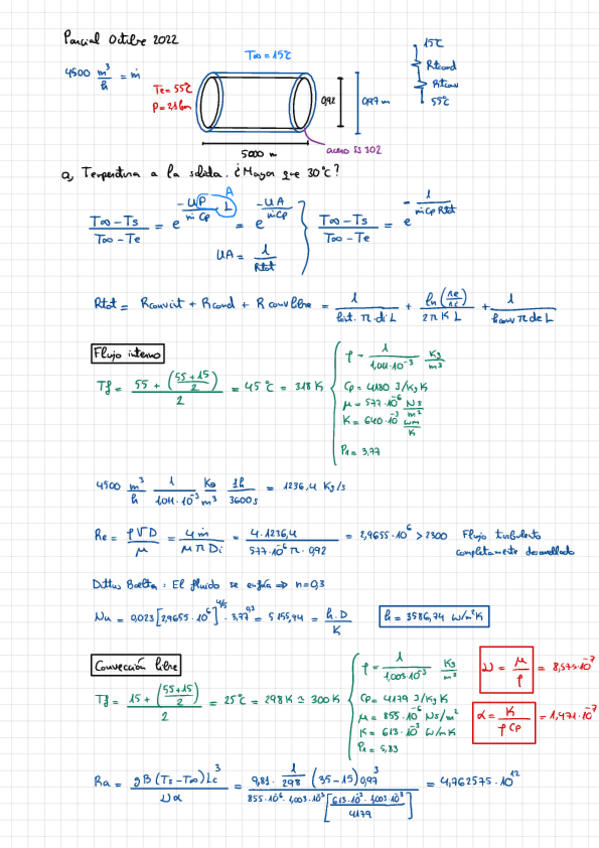 Parcial Octubre 2022
T∞ = 15℃
15℃
4500 m³/h = ṁ
Rtcond
Te = 55℃
Rtconv
P = 2 atm
0,92
0,97 m
55℃
5000 m
acero SS 302
a, Temperatura a la salida. ¿Mayor que 30℃?
(T∞ - Ts)/(T∞ - Te) = e^(-UP/(ṁ Cp) L) = e^(-UA/(ṁ Cp)) } (T∞ - Ts)/(T∞ - Te) = e^(-1/(ṁ Cp Rtot))
A
UA = 1/Rtot
Rtot = Rconvint + Rcond + R convlibre = 1/(hint. π. di L) + ln(re/ri)/(2π K L) + 1/(hconv π de L)
Flujo interno
Tf = (55 + ((55+15)/2))/2 = 45℃ = 318 K
ρ = 1/(1,011·10⁻³) Kg/m³
Cp = 4180 J/Kg K
μ = 577·10⁻⁶ Ns/m²
K = 640·10⁻³ Wm/K
Pr = 3,77
4500 m³/h 1/(1,011·10⁻³) Kg/m³ 1h/3600s = 1236,4 Kg/s
Re = ρVD/μ = 4ṁ/(μ π Di) = 4·1236,4/(577·10⁻⁶ π · 0,92) = 2,9655·10⁶ > 2300 Flujo turbulento
completamente desarrollado
Dittus Boelter: El fluido se enfría ⇒ n=0,3
Nu = 0,023 [2,9655·10⁶]^(4/5) · 3,77^0,3 = 5155,94 = h.D/K
h = 3586,74 W/m²K
Convección libre
Tf = (15 + ((55+15)/2))/2 = 25℃ = 298 K ≃ 300 K
ρ = 1/(1,003·10⁻³) Kg/m³
Cp = 4179 J/Kg K
μ = 855·10⁻⁶ Ns/m²
K = 613·10⁻³ W/mK
Pr = 5,83
ν = μ/ρ = 8,575·10⁻⁷
α = K/(ρ Cp) = 1,471·10⁻⁷
Ra = gB(Ts - T∞)Lc³/(να) = 9,81 · 1/298 (35-15) 0,97³/(855·10⁻⁶ · 1,003·10⁻³ [613·10⁻³ · 1,003·10⁻³/4179]) = 4,762575·10¹²